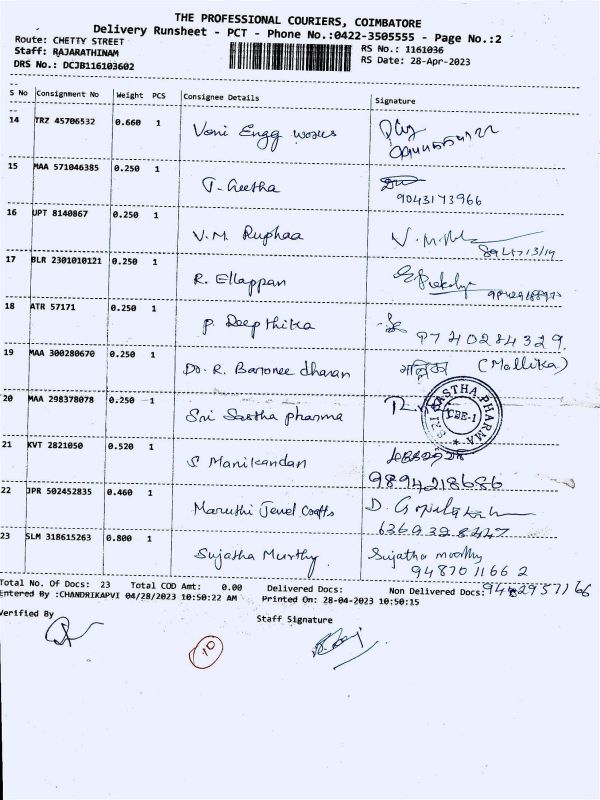 THE PROFESSIONAL COURIERS, COIMBATORE
Delivery Runsheet - PCT - Phone No.:0422-3505555 - Page No.:2
Route: CHETTY STREET
RS No.: 1161036
Staff: RAJARATHINAM
RS Date: 28-Apr-2023
DRS No.: DCJB116103602
S No Consignment No Weight PCS Consignee Details Signature
14 TRZ 45706532 0.660 1 Vani Engg works
15 MAA 571046385 0.250 1 T. Geetha
9043173966
16 UPT 8140867 0.250 1 V.M. Ruphaa V.M.
17 BLR 2301010121 0.250 1 R. Ellappan
18 ATR 57171 0.250 1 P. Deepthika
9740284329.
19 MAA 300280670 0.250 1 Do. R. Baronee dharan मल्लिका (Mallika)
20 MAA 298378078 0.250 1 Sri Sastha pharma
SRI SASTHA PHARMA CBE-1
21 KVT 2821050 0.520 1 S Manikandan
9894218686
22 JPR 502452835 0.460 1 Maruthi Jewel Crafts D.
23 SLM 318615263 0.800 1 Sujatha Murthy. Sujatha moorthy
9487011662
Total No. Of Docs: 23 Total COD Amt: 0.00 Delivered Docs: Non Delivered Docs:
Entered By :CHANDRIKAPVI 04/28/2023 10:50:22 AM Printed On: 28-04-2023 10:50:15
Verified By
Staff Signature
10